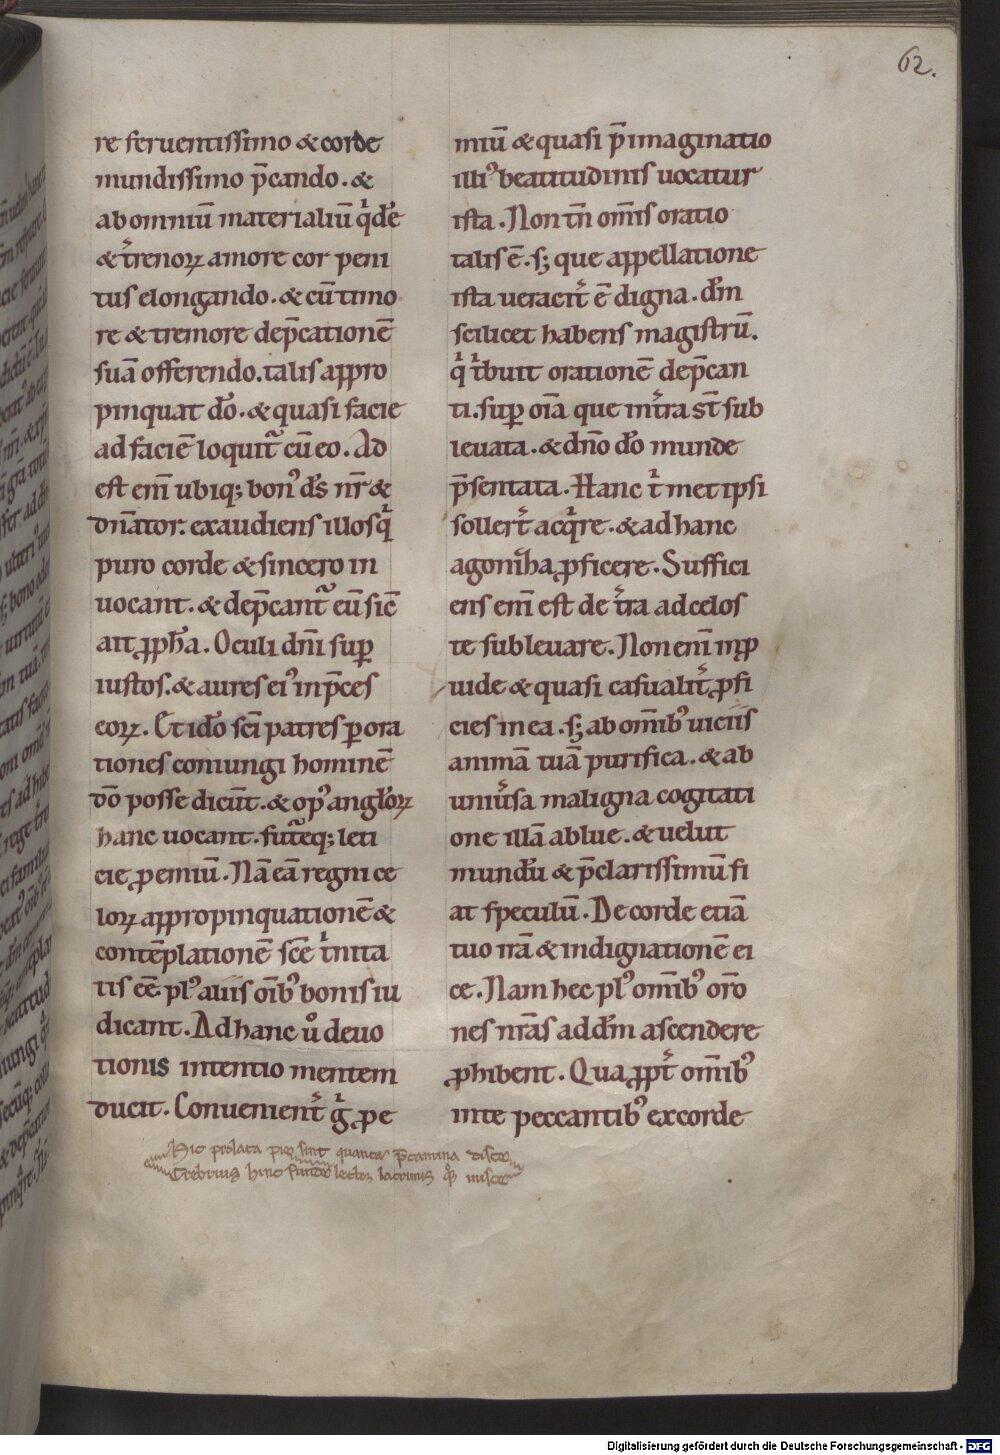 62.
re feruentissimo & corde
mundissimo p̄cando. &
ab omniū materialiū q̇ dē
& t̓renoꝝ amore cor peni
tus elongando. & cū timo
re & tremore dep̄cationē
suā offerendo. talis appro
pinquat dō. & quasi facie
ad faciē loquit᷑ cū eo. Ad
est eni ubiq; bon᷒ d̄s nr̄ &
dn̄ator: exaudiens illos q̇
puro corde & sincero in
uocant. & dep̄cant᷑ eū sic̄
ait ꝓph̄a. Oculi dn̄i suꝑ
iustos. & aures ei᷒ in p̄ces
eoꝝ. Et idō sc̄i patres ꝑ ora
tiones coniungi hominē
dō posse dicūt. & op᷒ angl̄oꝝ
hanc uocant. fut᷑eq; leti
cie ꝓemiū. Nā eā regni ce
loꝝ appropinquationē &
contēplationē sc̄e t̓nita
tis eē pl᷒ auis oīb᷒ bonis iu
dicant. Ad hanc u̇ deuo
tionis intentio mentem
ducit. Conuenient̓ g̓ ꝓ pe
Hic prolata pieꝫ sint quanta p̄camina disce
Crebrius hinc funde lector lacrimas quoque misce
miū & quasi p̄imaginatio
illi᷒ beatitudinis uocatur
ista. Non tn̄ om̄is oratio
talis ē. s; que appellatione
ista ueracit̓ ē digna. dm̄
scilicet habens magistrū.
q̇ t̓buit orationē dep̄can
ti. suꝑ oīa que int̓ra st̄ sub
leuata. & dn̄o dō munde
p̄sentata. Hanc t̓ met ipsi
sollert̓ acq̓re. & ad hanc
agonīha ꝓficere. Suffici
ens eni est de t̓ra ad celos
te subleuare. Non eni inꝓ
uide & quasi casualit̓ ꝓfi
cies in ea. s; ab om̄ib᷒ uiciis
animā tuā purifica. & ab
uniūsa maligna cogitati
one illā ablue. & uelut
mundū & p̄clarissimū fi
at speculū. De corde etiā
tuo irā & indignationē ei
ce. Nam hec pl᷒ om̄ib᷒ or̄o
nes nr̄as ad dm̄ ascendere
ꝓhibent. Qua ꝓpt̓ om̄ib᷒
in te peccantib᷒ ex corde
Digitalisierung gefördert durch die Deutsche Forschungsgemeinschaft - DFG